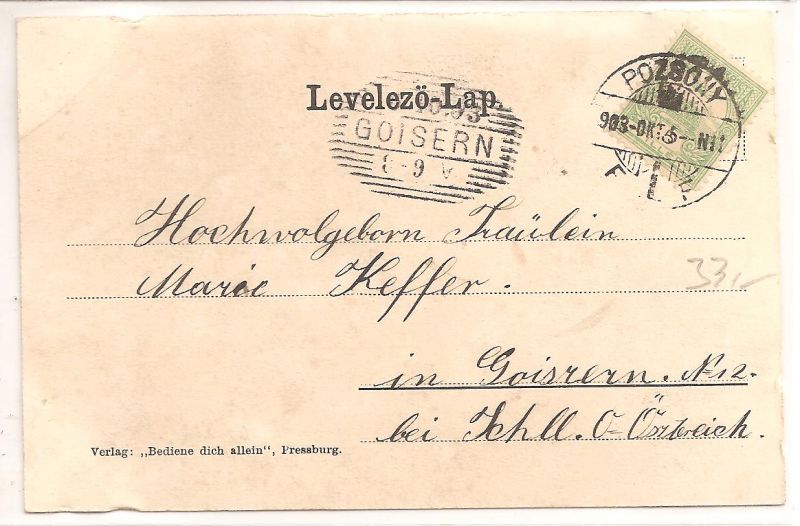 Levelező-Lap.
POZSONY
903-OKT.5-N11
GOISERN
8-9 V
Hochwolgeborn Fraülein
Marie Keffer.
33,-
in Goisern. N. 12.
bei Ischl. O-Österreich.
Verlag: „Bediene dich allein“, Pressburg.